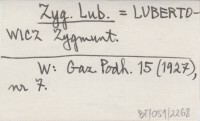 Zyg. Lub. = LUBERTO-
WICZ Zygmunt.
W: Gaz. Podh. 15 (1927),
nr 7.
BT/059/2268